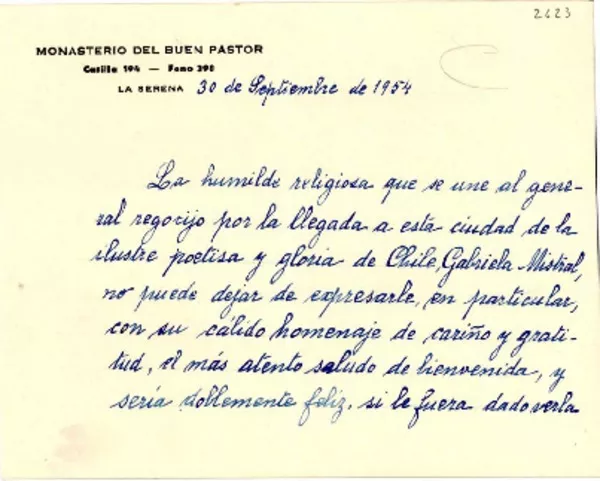 2623
MONASTERIO DEL BUEN PASTOR
Casilla 194 — Fono 398
LA SERENA 30 de Septiembre de 1954
La humilde religiosa que se une al gene-
ral regocijo por la llegada a esta ciudad de la
ilustre poetisa y gloria de Chile, Gabriela Mistral,
no puede dejar de expresarle, en particular,
con su cálido homenaje de cariño y grati-
tud, el más atento saludo de bienvenida, y
sería doblemente feliz, si le fuera dado verla